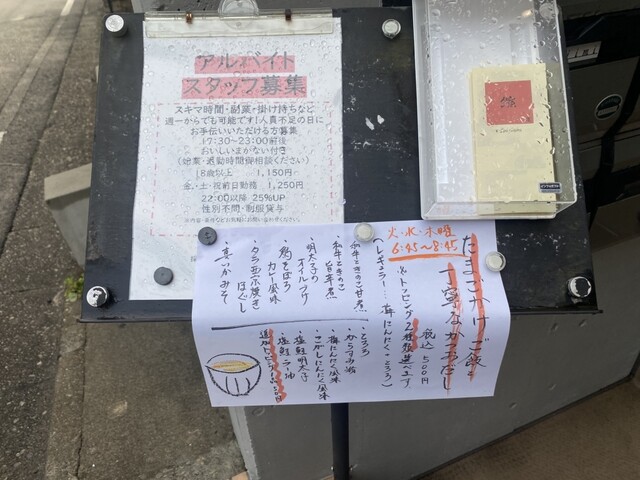 アルバイト
スタッフ募集
スキマ時間・副業・掛け持ちなど
週一からでも可能です!人員不足の日に
お手伝いいただける方募集
17:30~23:00前後
おいしいまかない付き
(始業・退勤時間御相談ください)
18歳以上 1,150円
金・土・祝前日勤務 1,250円
22:00以降 25%UP
性別不問・制服貸与
火・水・木曜
6:45~8:45
たまごかけご飯と
丁寧なかつおだし
税込500円
※トッピング2種類選べます
(レギュラー…梅にんにく・とろろ)
・和牛ときのこ甘煮
・和牛ときのこ旨辛煮
・明太子のオイルツナ
・鶏そぼろカレー風味
・タラ西京焼きほぐし
・いかみそ
・とろろ
・からすみ粉
・梅にんにく風味
・こがしにんにく風味
・塩鮭明太子
・塩鮭ラー油